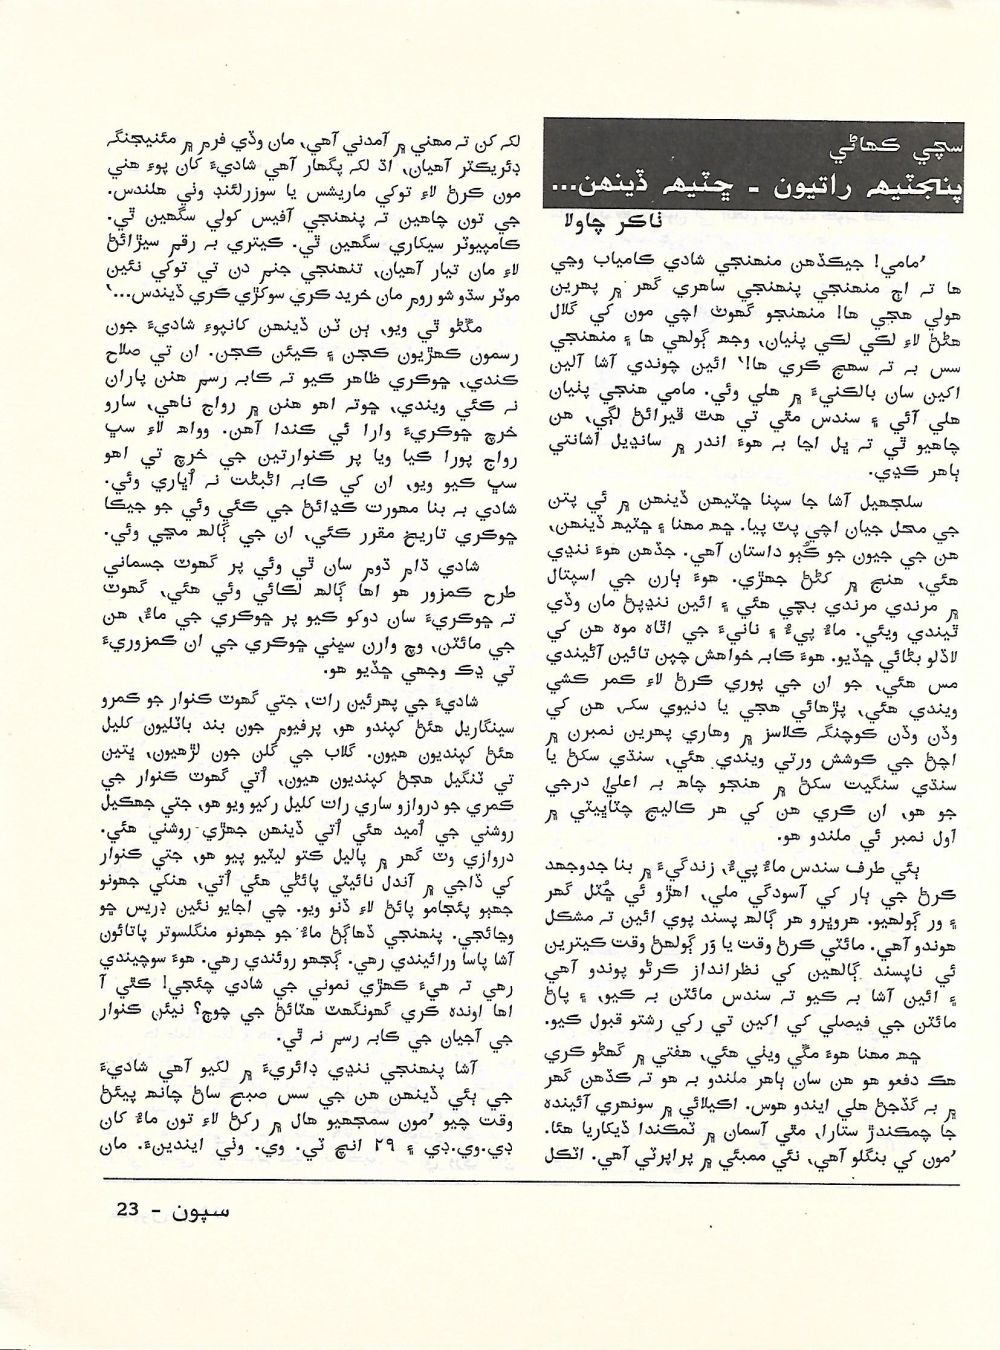 سچي ڪهاڻي
پنجٽيھ راتيون - ڇٽيھ ڏينهن...
ٺاڪر چاولا
’مامي! جيڪڏهن منهنجي شادي ڪامياب وڃي
ها تہ اڄ منهنجي پنهنجي ساهري گهر ۾ پهرين
هولي هجي ها! منهنجو گهوٽ اچي مون کي گلال
هڻڻ لاءِ لڪي لڪي پنيان، وجھ ڳولهي ها ۽ منهنجي
سس بہ تہ سهڄ ڪري ها!‘ ائين چوندي آشا آلين
اکين سان بالڪنيءَ ۾ هلي وئي. مامي هنجي پنيان
هلي آئي ۽ سندس مٿي تي هٿ ڦيرائڻ لڳي، هن
چاهيو ٿي تہ ڀل اڃا بہ هوءَ اندر ۾ سانڍيل آشانتي
ٻاهر ڪڍي.
سلڇهيل آشا جا سپنا ڇٽيهن ڏينهن ۾ ئي پتن
جي محل جيان اچي پٽ پيا. ڇھ مهنا ۽ ڇٽيھ ڏينهن،
هن جي جيون جو ڪُٻو داستان آهي. جڏهن هوءَ ننڍي
هئي، هنڄ ۾ کڻڻ جهڙي. هوءَ ٻارن جي اسپتال
۾ مرندي مرندي بچي هئي ۽ ائين ننڍپڻ مان وڏي
ٿيندي ويئي. ماءُ پيءُ ۽ نانيءَ جي اٿاھ موھ هن کي
لاڏلو بڻائي ڇڏيو. هوءَ ڪابہ خواهش چپن تائين آڻيندي
مس هئي، جو ان جي پوري ڪرڻ لاءِ ڪمر ڪشي
ويندي هئي، پڙهائي هجي يا دنيوي سکہ، هن کي
وڏن وڏن ڪوچنگہ ڪلاسز ۾ وهاري پهرين نمبرن ۾
اچڻ جي ڪوشش ورتي ويندي هئي، سنڌي سکڻ يا
سنڌي سنگيت سکڻ ۾ هنجو چاھ بہ اعليٰ درجي
جو هو، ان ڪري هن کي هر ڪاليج چٽاڀيٽي ۾
اَول نمبر ئي ملندو هو.
ٻئي طرف سندس ماءُ پيءُ، زندگيءَ ۾ بنا جدوجهد
ڪرڻ جي ٻار کي آسودگي ملي، اهڙو ئي ڇُٽل گهر
۽ ور ڳولهيو. هروڀرو هر ڳالھ پسند پوي ائين تہ مشڪل
هوندو آهي. مائٽي ڪرڻ وقت يا وَر ڳولهڻ وقت ڪيترين
ئي ناپسند ڳالهين کي نظرانداز ڪرڻو پوندو آهي
۽ ائين آشا بہ ڪيو تہ سندس مائٽن بہ ڪيو، ۽ پاڻ
مائٽن جي فيصلي کي اکين تي رکي رشتو قبول ڪيو.
ڇھ مهنا هوءَ مڱي ويٺي هئي، هفتي ۾ گهڻو ڪري
هڪ دفعو هو هن سان ٻاهر ملندو بہ هو تہ ڪڏهن گهر
۾ بہ گڏجڻ هلي ايندو هوس. اڪيلائي ۾ سونهري آئيندھ
جا چمڪندڙ ستارا، مٿي آسمان ۾ ٽمڪندا ڏيکاريا هئا.
’مون کي بنگلو آهي، نئي ممبئي ۾ پراپرٽي آهي. اٽڪل
لکہ کن تہ مهني ۾ آمدني آهي، مان وڏي فرم ۾ مئنيجنگہ
ڊئريڪٽر آهيان، اڌ لکہ پگهار آهي شاديءَ کان پوءِ هني
مون ڪرڻ لاءِ توکي ماريشس يا سوزرلئنڊ وٺي هلندس.
جي تون چاهين تہ پنهنجي آفيس کولي سگهين ٿي.
ڪامپيوٽر سيکاري سگهين ٿي. ڪيتري بہ رقم سيڙائڻ
لاءِ مان تيار آهيان، تنهنجي جنم دن تي توکي نئين
موٽر سڌو شو روم مان خريد ڪري سوکڙي ڪري ڏيندس...‘
مڱڻو ٿي ويو، ٻن ٽن ڏينهن کانپوءِ شاديءَ جون
رسمون ڪهڙيون ڪجن ۽ ڪيئن ڪجن. ان تي صلاح
ڪندي، ڇوڪري ظاهر ڪيو تہ ڪابہ رسم هنن پاران
نہ ڪئي ويندي، ڇوتہ اهو هنن ۾ رواج ناهي، سارو
خرچ ڇوڪريءَ وارا ئي ڪندا آهن. وواھ لاءِ سڀ
رواج پورا ڪيا ويا پر ڪنوارتين جي خرچ تي اهو
سڀ ڪيو ويو، ان کي ڪابہ اڻبڻت نہ اُڀاري وئي.
شادي بہ بنا مهورت ڪڍائڻ جي ڪئي وئي جو جيڪا
ڇوڪري تاريخ مقرر ڪئي، ان جي ڳالھ مڃي وئي.
شادي ڌام ڌوم سان ٿي وئي پر گهوٽ جسماني
طرح ڪمزور هو اها ڳالھ لڪائي وئي هئي، گهوٽ
تہ ڇوڪريءَ سان دوکو ڪيو پر ڇوڪري جي ماءُ، هن
جي مائٽن، وچ وارن سڀني ڇوڪري جي ان ڪمزوريءَ
تي ڍڪ وجهي ڇڏيو هو.
شاديءَ جي پهرئين رات، جتي گهوٽ ڪنوار جو ڪمرو
سينگاريل هئڻ کپندو هو، پرفيوم جون بند باٽليون کليل
هئڻ کپنديون هيون. گلاب جي گلن جون لڙهيون، ڀتين
تي ٽنگيل هجڻ کپنديون هيون، اُتي گهوٽ ڪنوار جي
ڪمري جو دروازو ساري رات کليل رکيو ويو هو، جتي جهڪيل
روشني جي اُميد هئي اُتي ڏينهن جهڙي روشني هئي.
دروازي وٽ گهر ۾ پاليل ڪتو ليٽيو پيو هو، جتي ڪنوار
کي ڏاجي ۾ آندل نائيٽي پائڻي هئي اُتي، هنکي جهونو
جهٻو پئجامو پائڻ لاءِ ڏنو ويو. چي اجايو نئين ڊريس ڇو
وڃائجي. پنهنجي ڏهاڳڻ ماءُ جو جهونو منگلسوتر پاتائون
آشا پاسا ورائيندي رهي. ڳجهو روئندي رهي. هوءَ سوچيندي
رهي تہ هيءَ ڪهڙي نموني جي شادي چئجي! ڪٿي آ
اها اونده ڪري گهونگهٽ هٽائڻ جي چوڄ؟ نيئن ڪنوار
جي آجيان جي ڪابہ رسم نہ ٿي.
آشا پنهنجي ننڍي ڊائريءَ ۾ لکيو آهي شاديءَ
جي ٻئي ڏينهن هن جي سس صبح ساڻ چانھ پيئڻ
وقت چيو ’مون سمجهيو هال ۾ رکڻ لاءِ تون ماءُ کان
ڊي.وي.ڊي ۽ ٢٩ انچ ٽي. وي. وٺي ايندينءَ. مان
سپون - 23